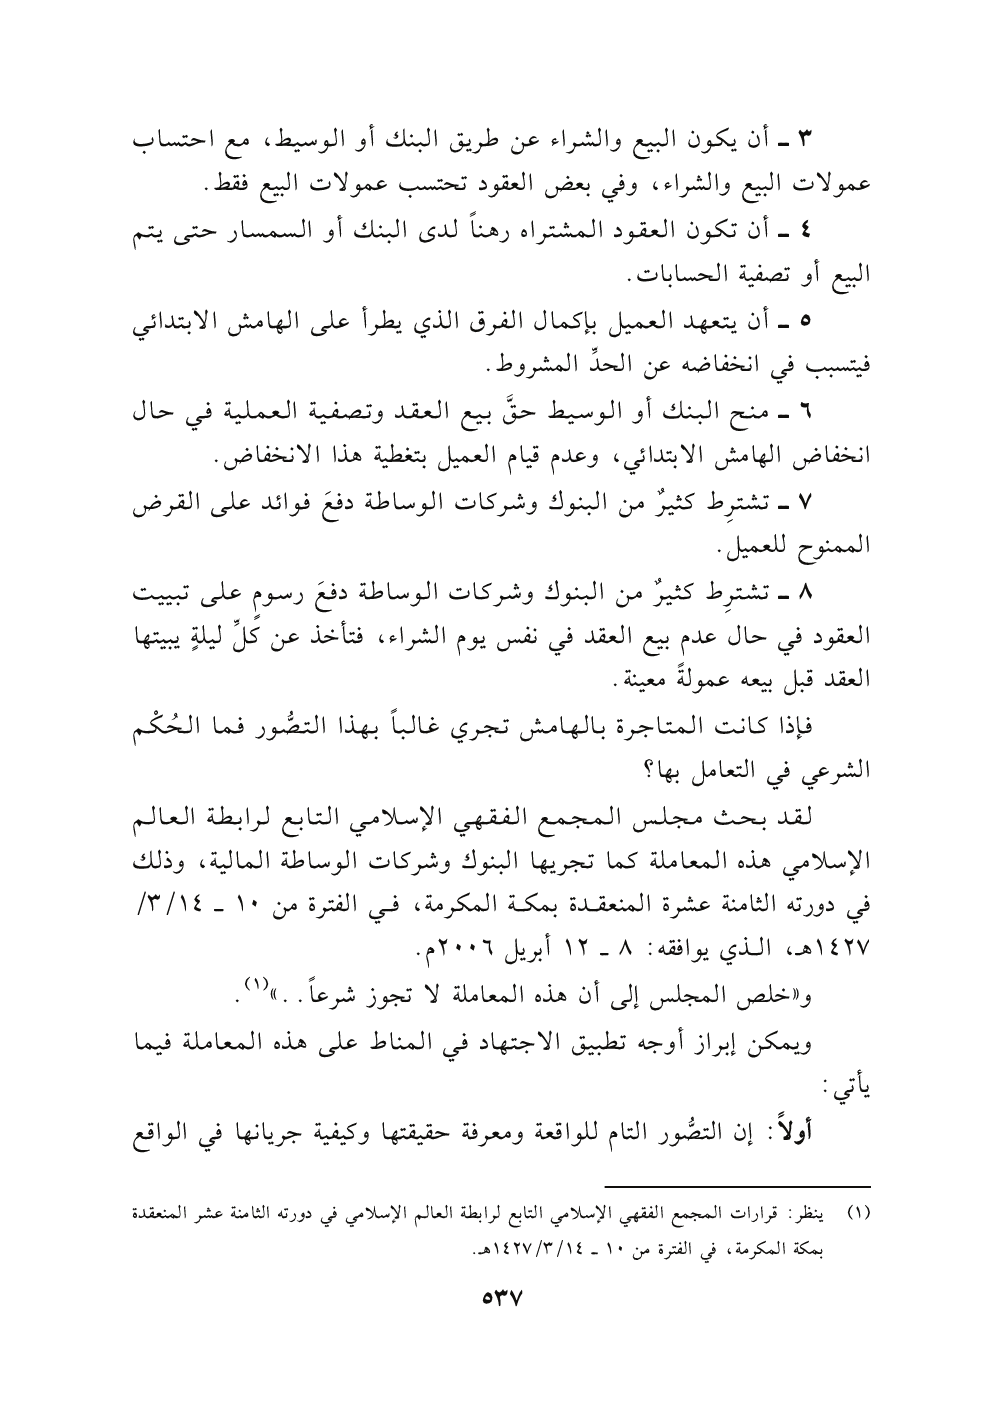 ٣ ـ أن يكون البيع والشراء عن طريق البنك أو الوسيط، مع احتساب
عمولات البيع والشراء، وفي بعض العقود تحتسب عمولات البيع فقط.
٤ ـ أن تكون العقود المشتراه رهناً لدى البنك أو السمسار حتى يتم
البيع أو تصفية الحسابات.
٥ ـ أن يتعهد العميل بإكمال الفرق الذي يطرأ على الهامش الابتدائي
فيتسبب في انخفاضه عن الحدِّ المشروط.
٦ ـ منح البنك أو الوسيط حقَّ بيع العقد وتصفية العملية في حال
انخفاض الهامش الابتدائي، وعدم قيام العميل بتغطية هذا الانخفاض.
٧ ـ تشترِط كثيرٌ من البنوك وشركات الوساطة دفعَ فوائد على القرض
الممنوح للعميل.
٨ ـ تشترِط كثيرٌ من البنوك وشركات الوساطة دفعَ رسومٍ على تبييت
العقود في حال عدم بيع العقد في نفس يوم الشراء، فتأخذ عن كلِّ ليلةٍ يبيتها
العقد قبل بيعه عمولةً معينة.
فإذا كانت المتاجرة بالهامش تجري غالباً بهذا التصُّور فما الحُكْم
الشرعي في التعامل بها؟
لقد بحث مجلس المجمع الفقهي الإسلامي التابع لرابطة العالم
الإسلامي هذه المعاملة كما تجريها البنوك وشركات الوساطة المالية، وذلك
في دورته الثامنة عشرة المنعقدة بمكة المكرمة، في الفترة من ١٠ ـ ١٤/٣/
١٤٢٧هـ، الذي يوافقه: ٨ ـ ١٢ أبريل ٢٠٠٦م.
و«خلص المجلس إلى أن هذه المعاملة لا تجوز شرعاً..»(١).
ويمكن إبراز أوجه تطبيق الاجتهاد في المناط على هذه المعاملة فيما
يأتي:
أولاً: إن التصُّور التام للواقعة ومعرفة حقيقتها وكيفية جريانها في الواقع
(١) ينظر: قرارات المجمع الفقهي الإسلامي التابع لرابطة العالم الإسلامي في دورته الثامنة عشر المنعقدة
بمكة المكرمة، في الفترة من ١٠ ـ ١٤/٣/١٤٢٧هـ.
٥٣٧